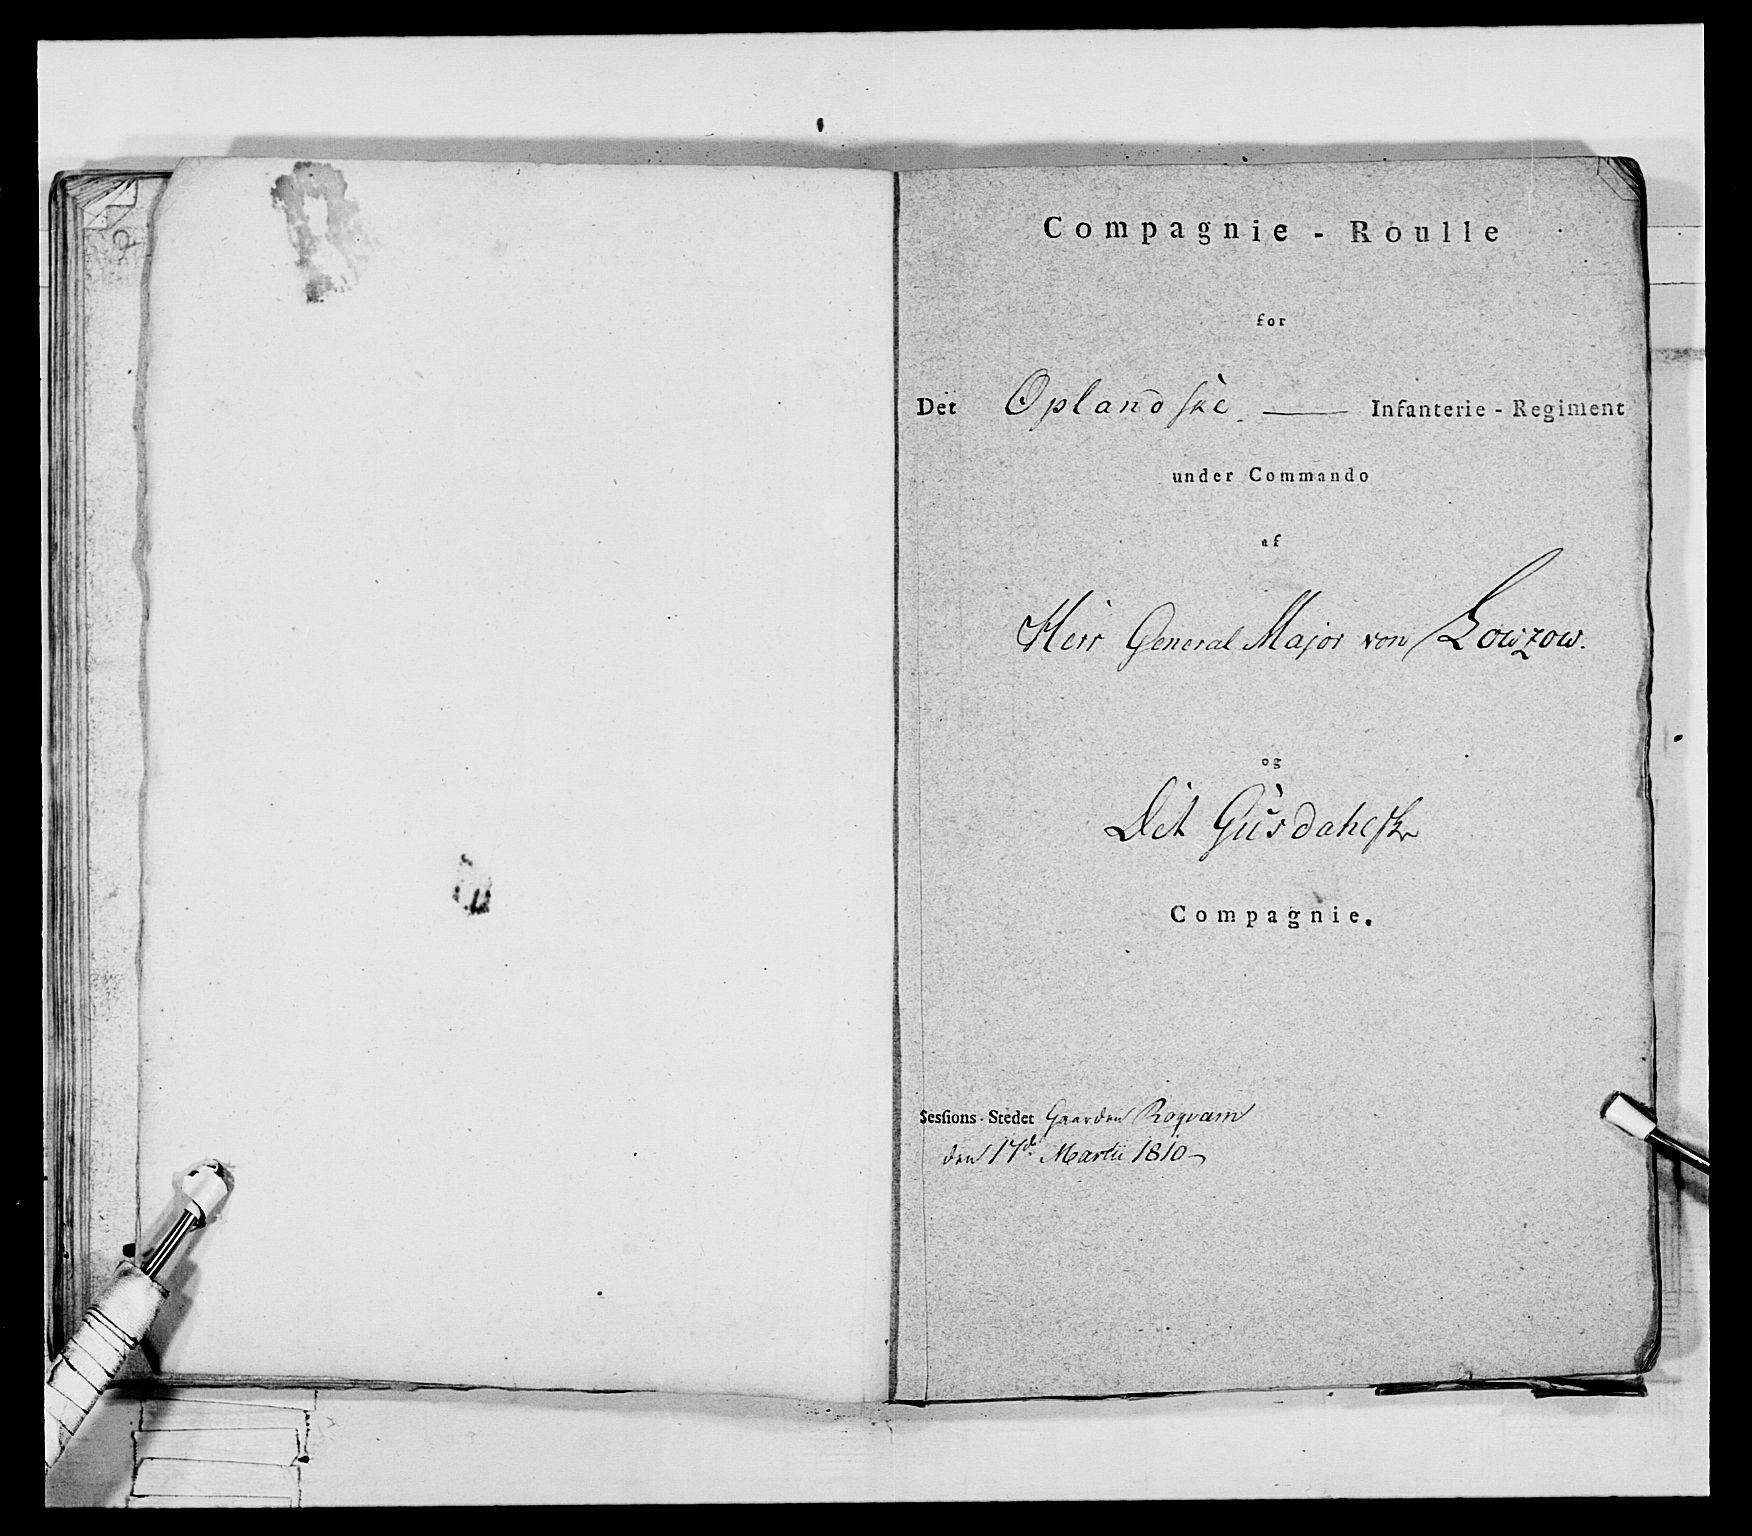 Compagnie - Roulle
for
Det Oplandske. — Infanterie - Regiment
under Commando
af
Herr General Major von Lowzow.
og
Det Gusdahlske
Compagnie.
Sessions-Stedet Gaarden Roqvam
den 17de Martii 1810